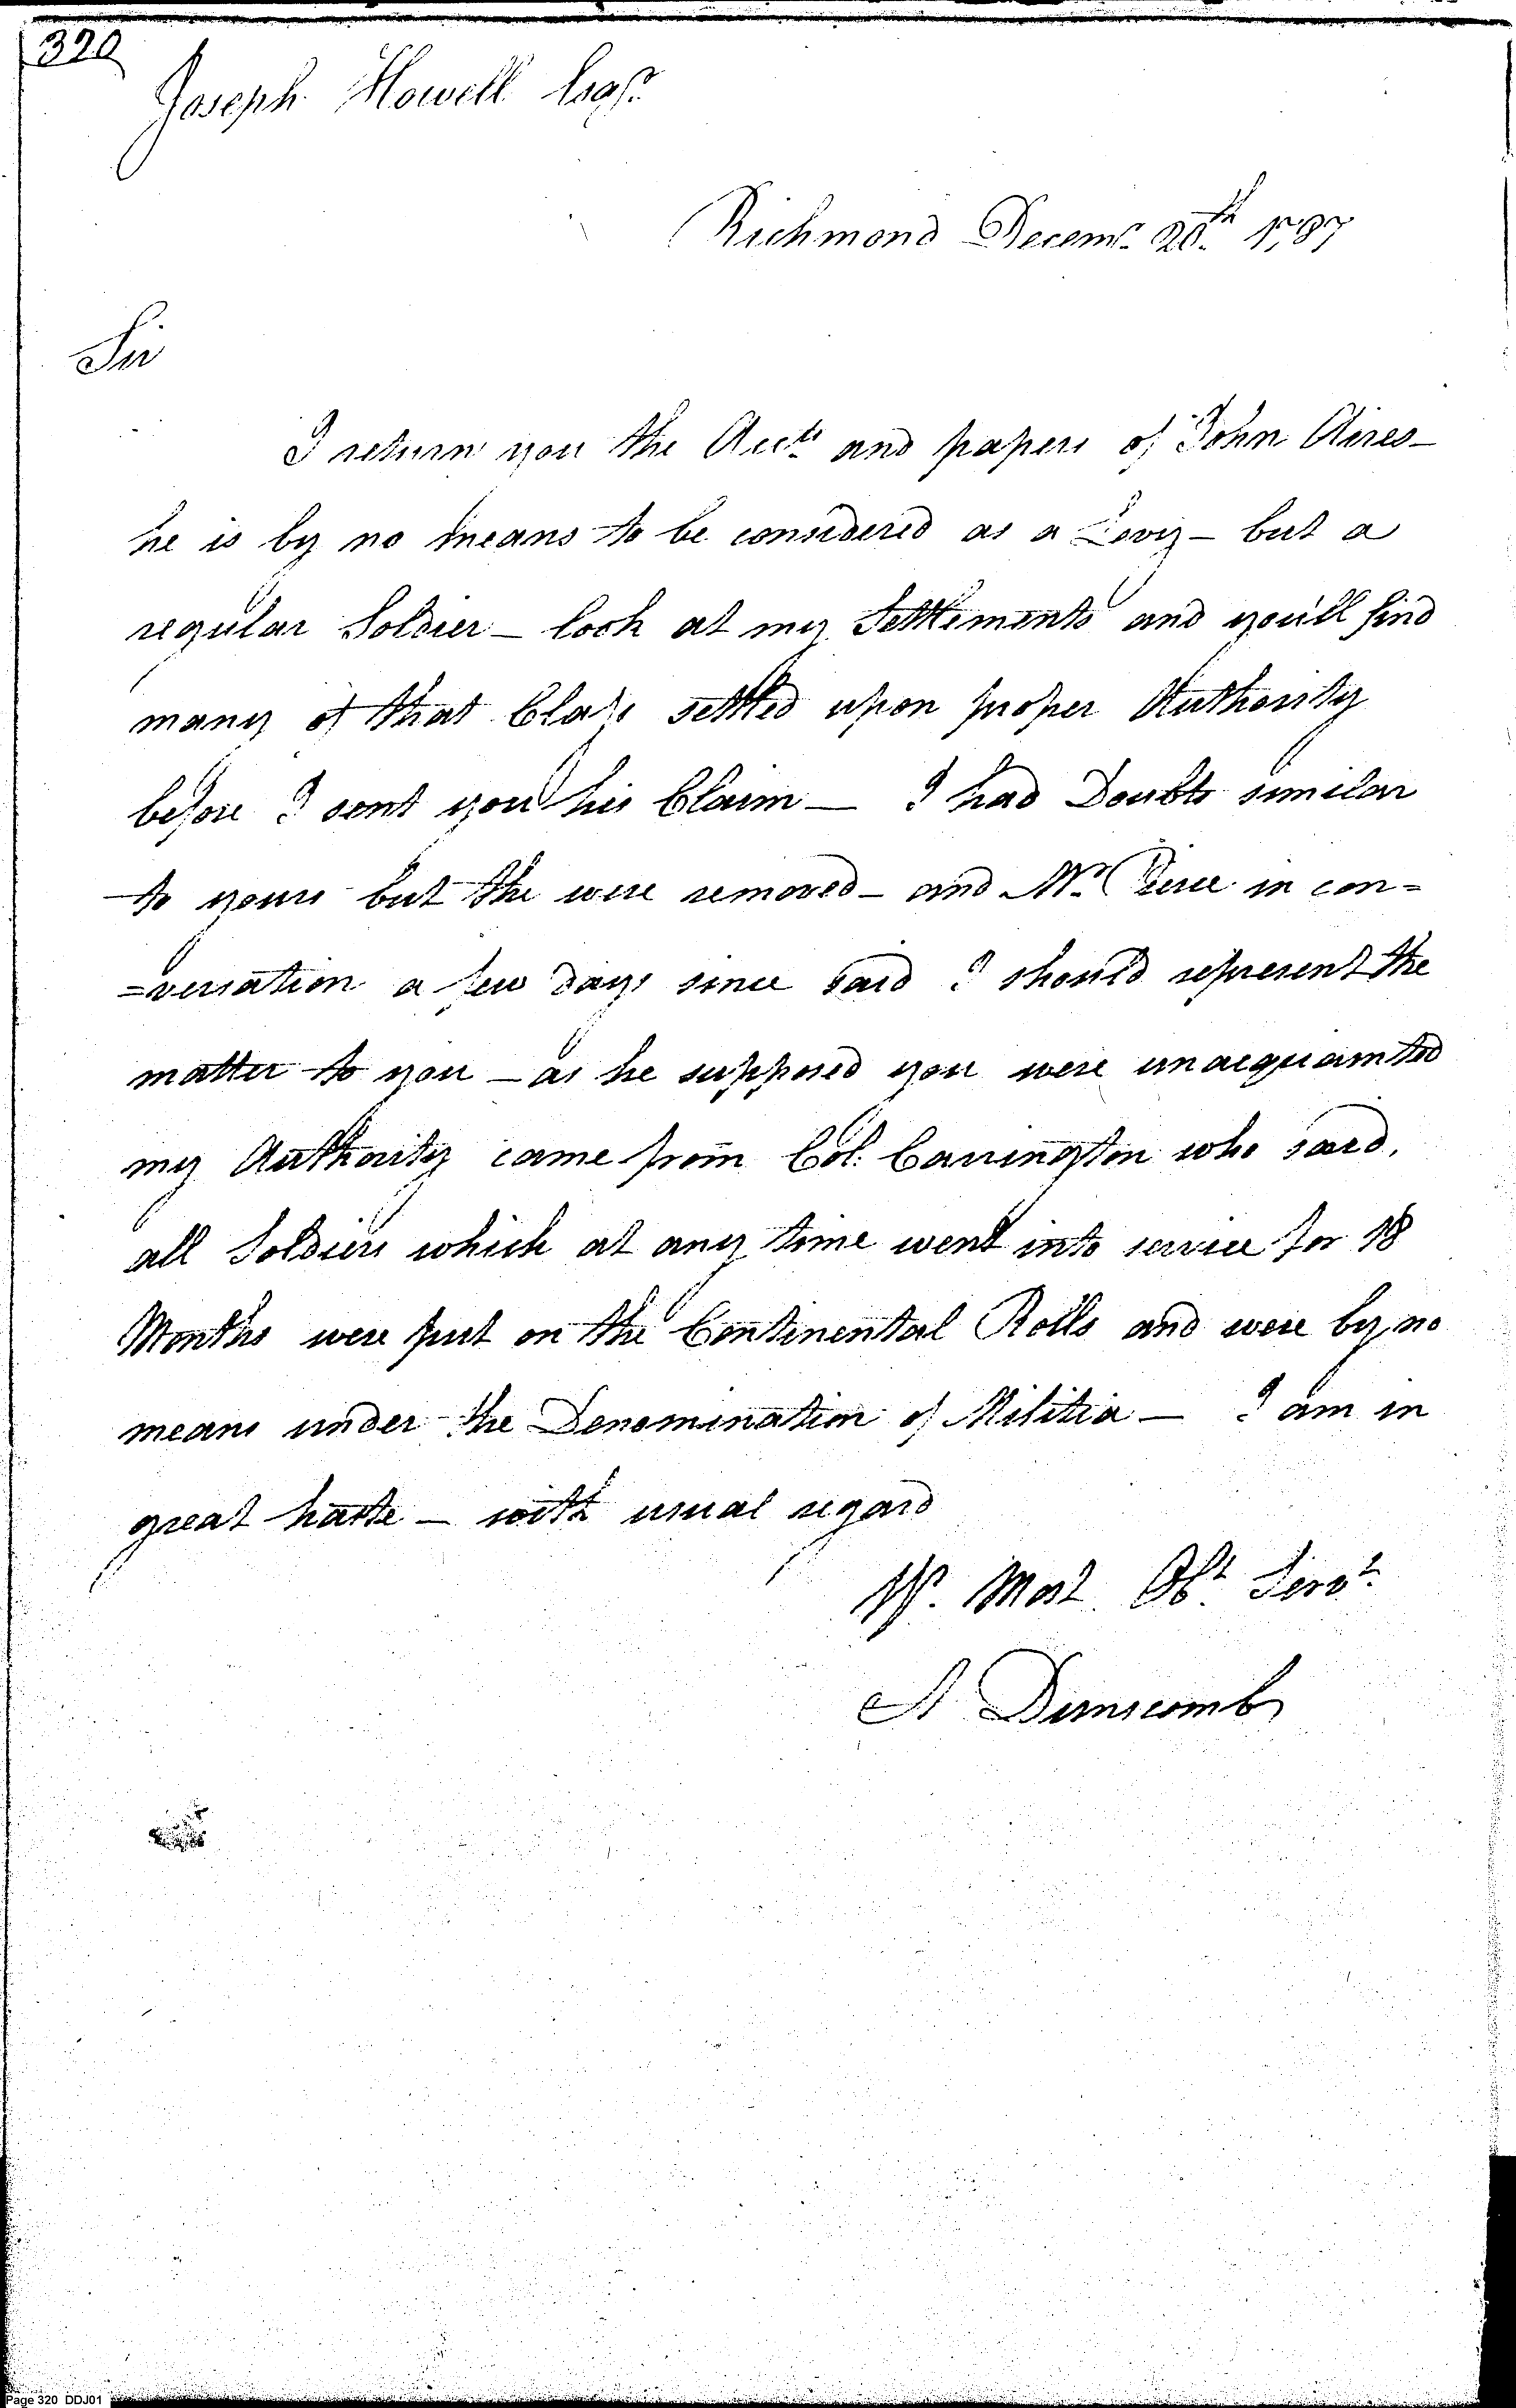 320
Joseph Howell Esqr.
Richmond Decemr. 20th. 1787
Sir
I return you the Accts. and papers of John Aires–
he is by no means to be considered as a Levy – but a
regular Soldier – look at my Settlements and you'll find
many of that Class settled upon proper Authority
before I sent you his Claim — I had Doubts similar
to yours but the were removed – and Mr. Pierce in con=
=versation a few days since said I should represent the
matter to you – as he supposed you were unacquainted
my Authority came from Col. Carrington who said,
all Soldiers which at any time went into service for 18
Months were put on the Continental Rolls and were by no
means under the Denomination of Militia — I am in
great haste – with usual regard
Yr. Most Obt. Servt.
A Dunscomb
Page 320 DDJ01